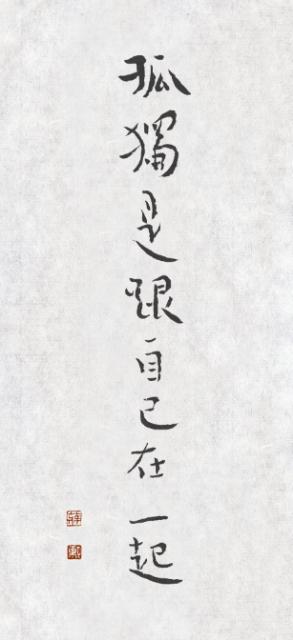 孤獨是跟自己在一起